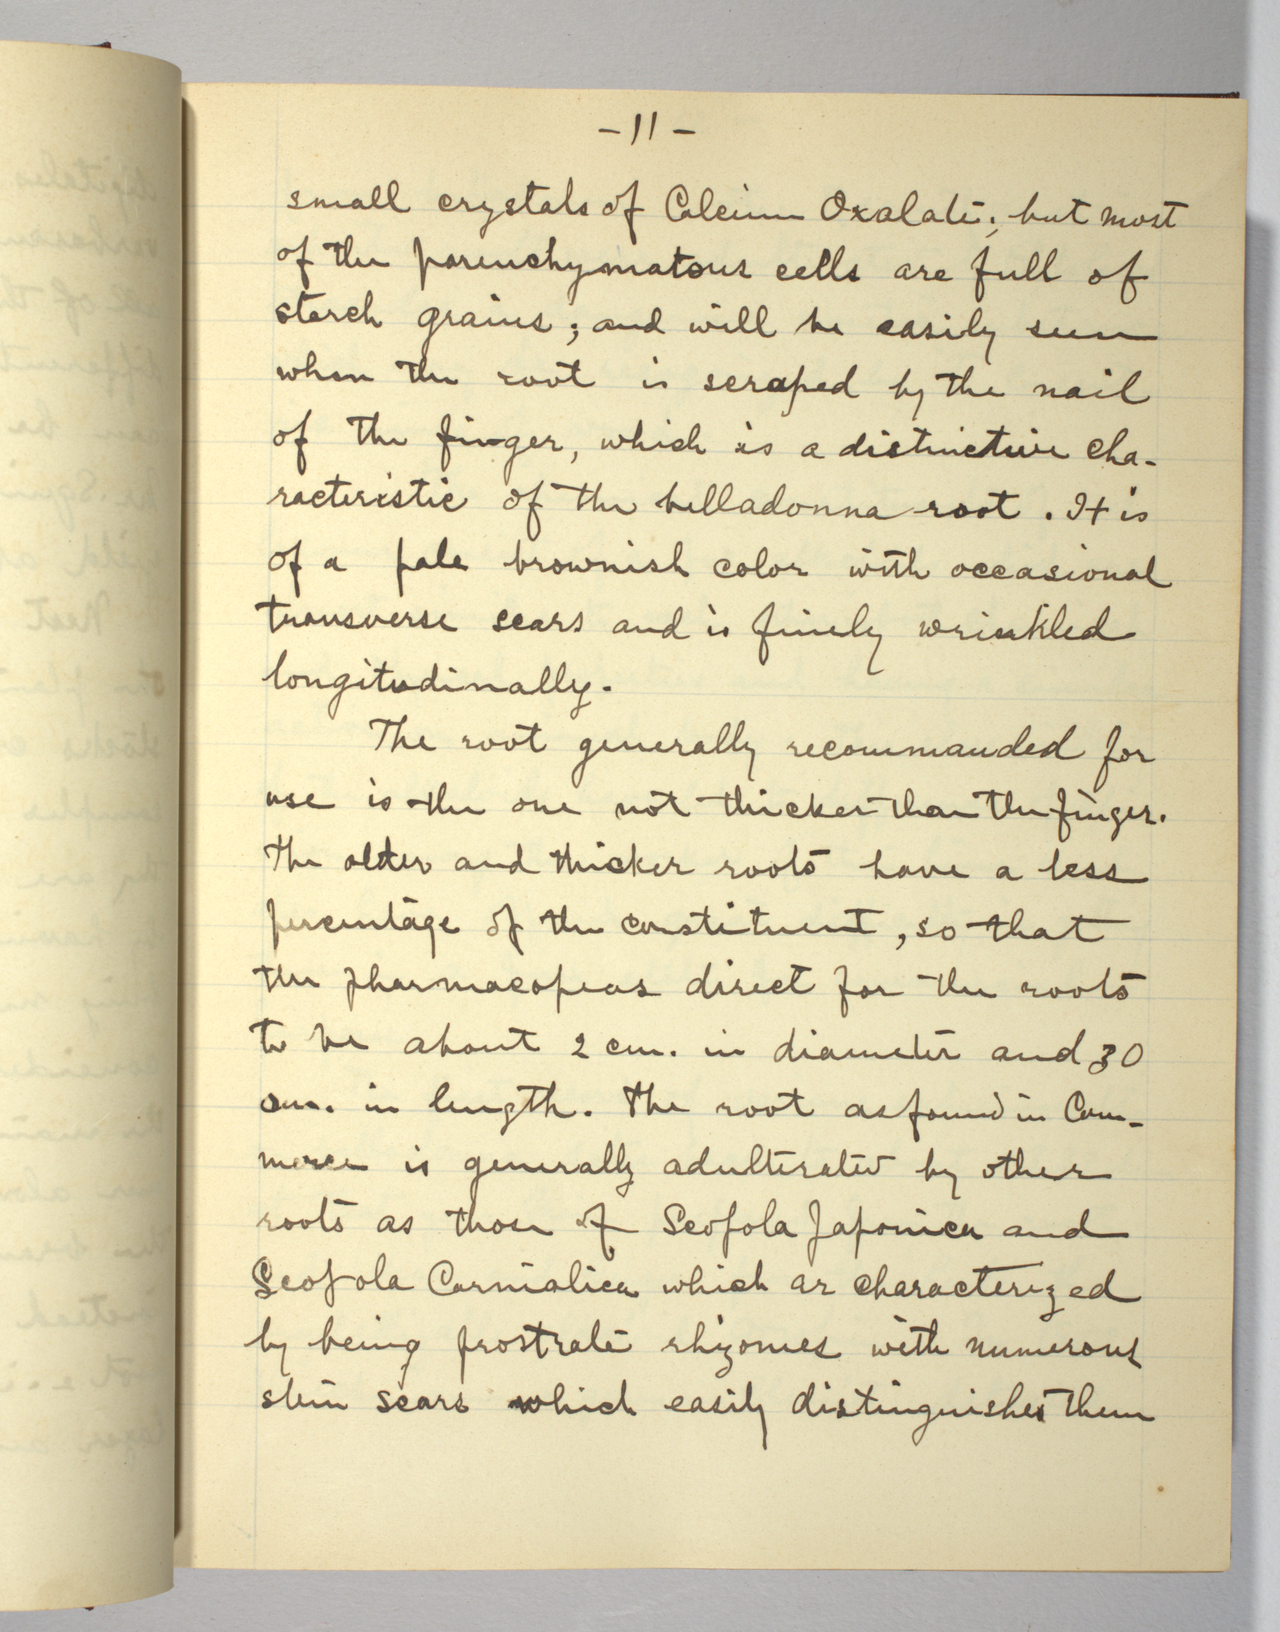 -11-
small crystals of Calcium Oxalate; but most
of the parenchymatous cells are full of
starch grains; and will be easily seen
when the root is scraped by the nail
of the finger, which is a distinctive cha-
racteristic of the belladonna root. It is
of a pale brownish color with occasional
transverse scars and is finely wrinkled
longitudinally.
The root generally recommanded for
use is the one not thicker than the finger.
The older and thicker roots have a less
percentage of the constituent, so that
the pharmacopeas direct for the roots
to be about 2 cm. in diameter and 30
cm. in length. The root as found in Com-
merce is generally adulterated by other
roots as those of Scopola Japonica and
Scopola Carniolica which ar characterized
by being prostrate rhizomes with numerous
stem scars which easily distinguishes them